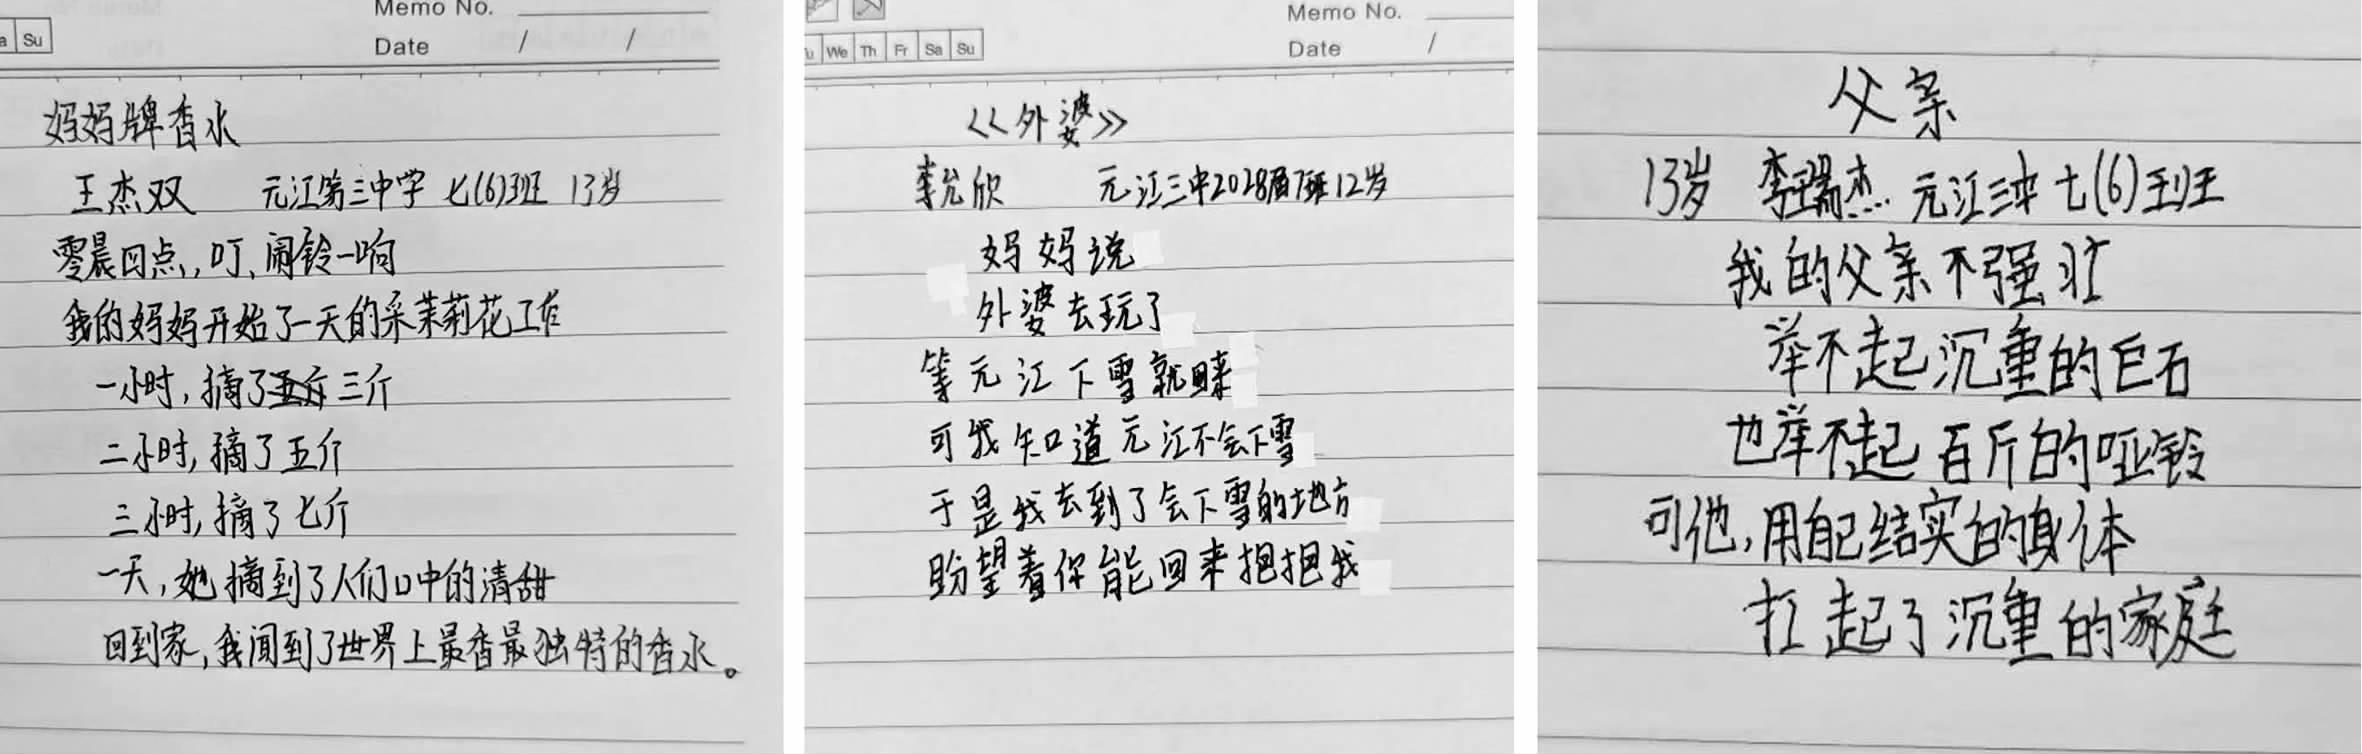 Memo No.
a Su
Date / /
妈妈牌香水
王杰双 元江第三中学 七(6)班 13岁
零晨四点,叮、闹铃一响
我的妈妈开始了一天的采茉莉花工作
一小时,摘了三斤
二小时,摘了五斤
三小时,摘了七斤
一天,她摘到了人们口中的清甜
回到家,我闻到了世界上最香最独特的香水。
Memo No.
u We Th Fr Sa Su
Date /
<<外婆>>
李允欣 元江三中2028届7班12岁
妈妈说
外婆去玩了
等元江下雪就回来
可我知道元江不会下雪
于是我去到了会下雪的地方
盼望着你能回来抱抱我
父亲
13岁 李瑞杰 元江三中 七(6)班
我的父亲不强壮
举不起沉重的巨石
也举不起百斤的哑铃
可他,用自己结实的身体
扛起了沉重的家庭